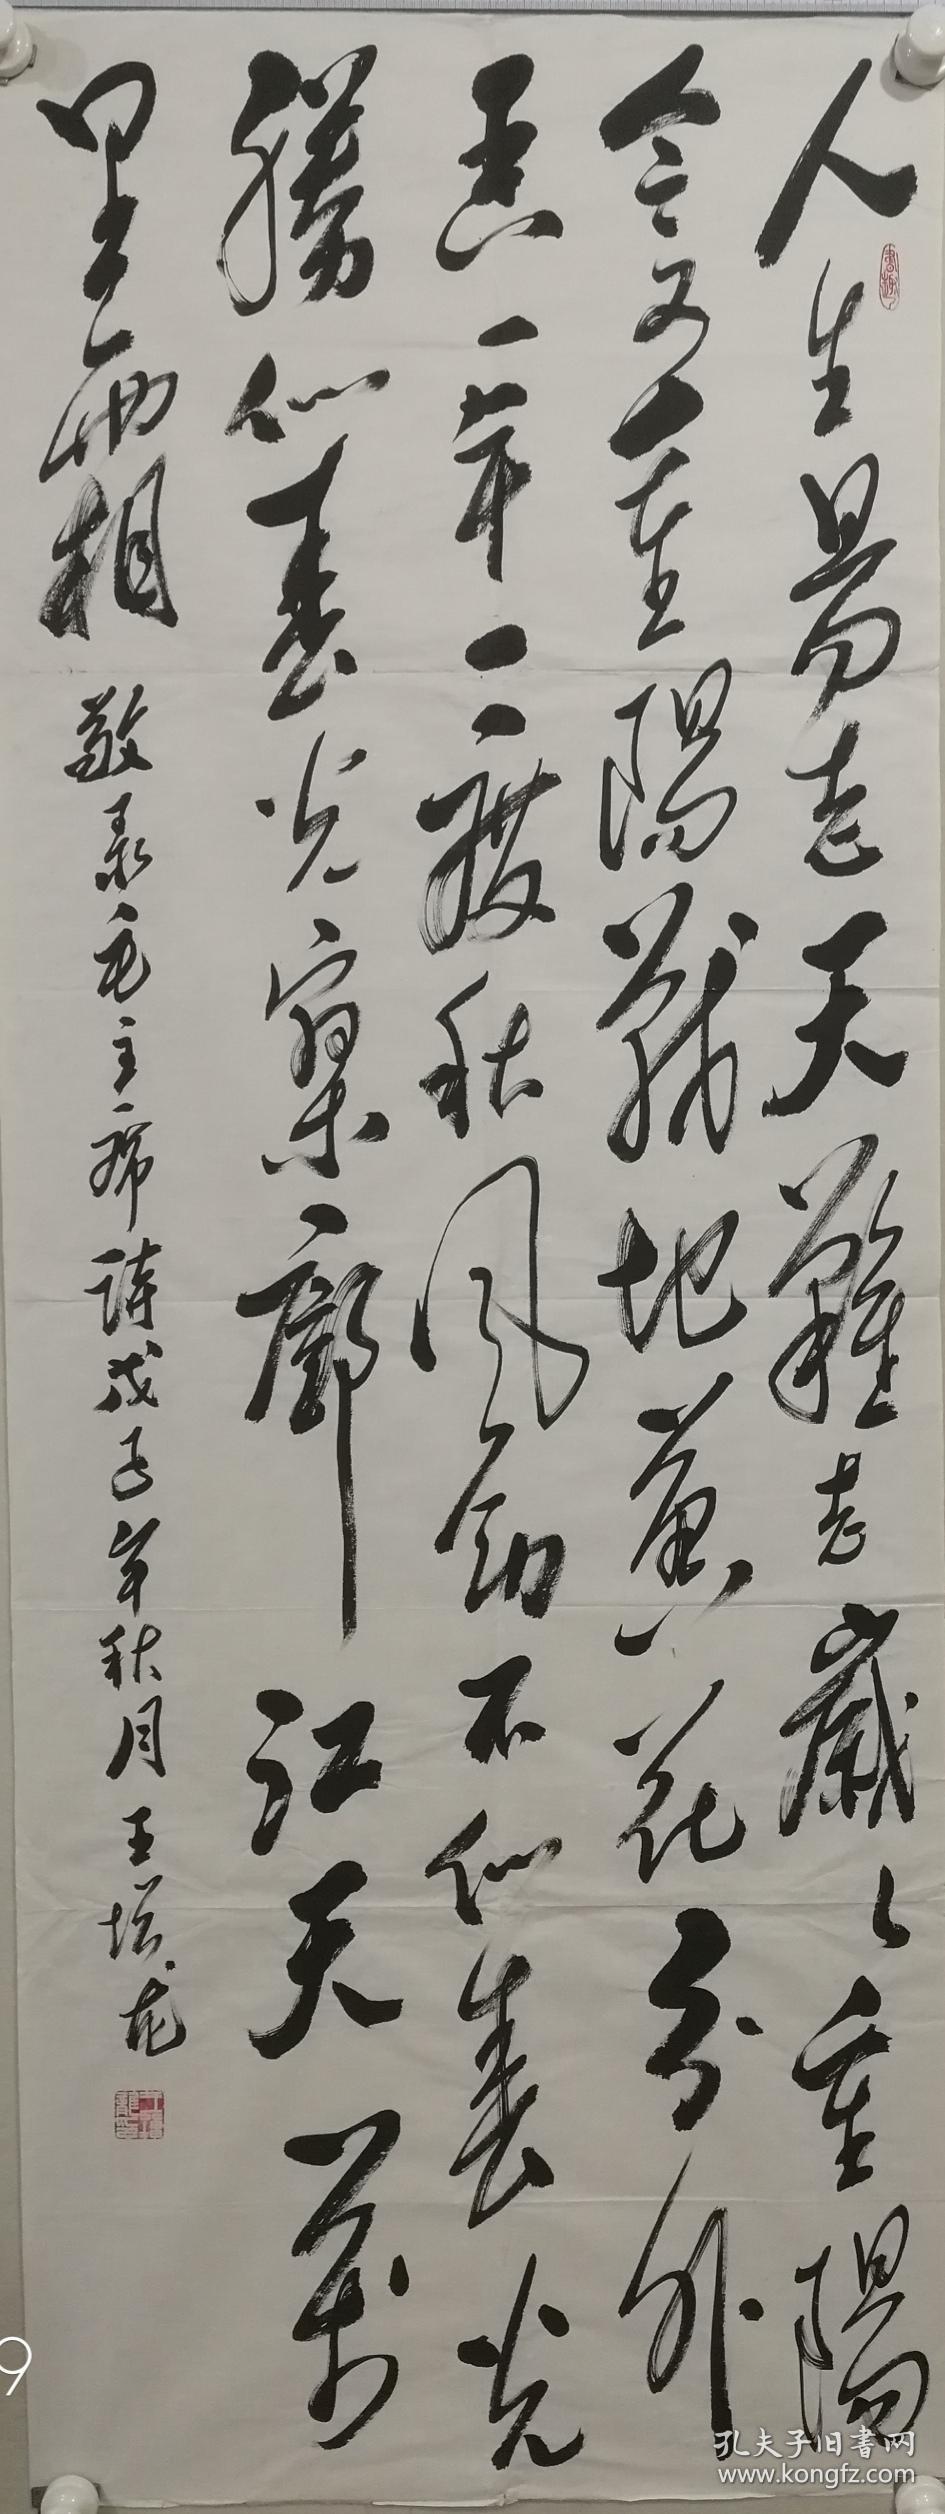 人生易老天難老歲々重陽
今又重陽戰地黄花分外
香一年一度秋風勁不似春光
勝似春光寥廓江天萬
里霜 敬录毛主席詩戊子年秋月王增龙
孔夫子旧書网
www.kongfz.com
9